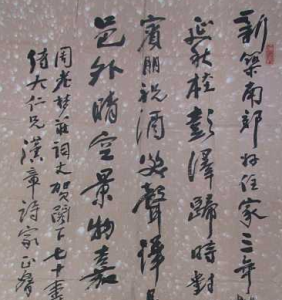 新築南郊好住家三年
延秋桂彭澤歸時對
賓朋祝酒出聲譁
邑外晴空景物嘉
周老梦莊詞丈賀閣下七十壽
倚大仁兄漢章詩家正